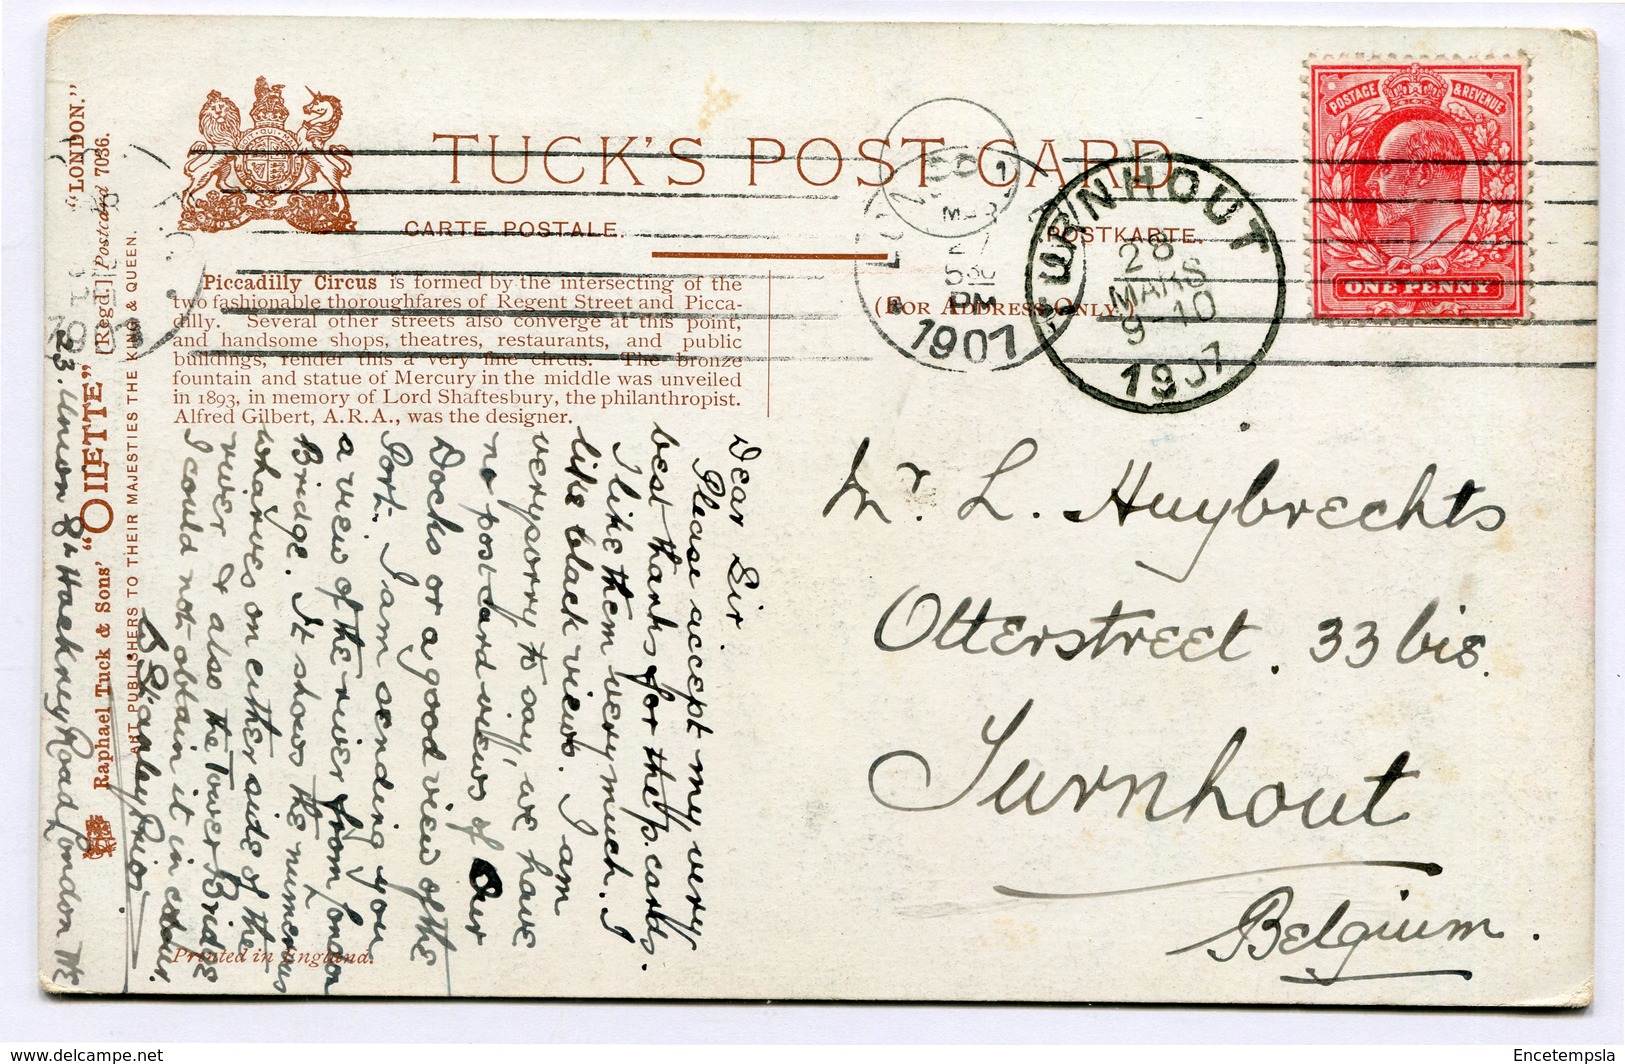 TUCK'S POST CARD
CARTE POSTALE.
POSTKARTE.
(FOR ADDRESS ONLY.)
POSTAGE & REVENUE
ONE PENNY
LONDON
MAR
27
5
PM
1907
TURNHOUT
28
MARS
9-10
1907
1907
Piccadilly Circus is formed by the intersecting of the
two fashionable thoroughfares of Regent Street and Picca-
dilly. Several other streets also converge at this point,
and handsome shops, theatres, restaurants, and public
buildings, render this a very fine circus. The bronze
fountain and statue of Mercury in the middle was unveiled
in 1893, in memory of Lord Shaftesbury, the philanthropist.
Alfred Gilbert, A.R.A., was the designer.
Raphael Tuck & Sons' "OILETTE" [Regd.] Postcard 7036.
"LONDON."
ART PUBLISHERS TO THEIR MAJESTIES THE KING & QUEEN.
Printed in England.
Dear Sir
Please accept my very
best thanks for the p. cards.
I like them very much. I
like black views. I am
very sorry to say, we have
no post card views of our
Docks or a good view of the
Port. I am sending you
a view of the river from London
Bridge. It shows the numerous
wharves on either side of the
river & also the Tower Bridge
I could not obtain it in colour.
Stanley Prior
23. Union St Hackney Road London NE
Mr. L. Huybrechts
Otterstreet. 33 bis.
Turnhout
Belgium.
Encetempsla